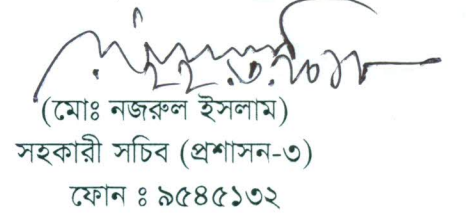 (মোঃ নজরুল ইসলাম)
সহকারী সচিব (প্রশাসন-৩)
ফোন ঃ ৯৫৪৫১৩২